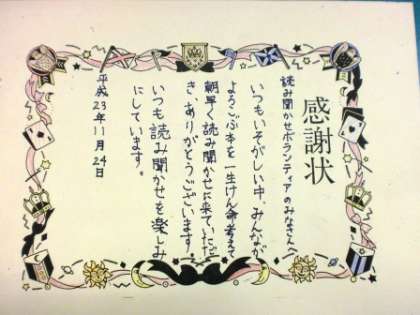 感謝状
読み聞かせボランティアのみなさんへ
いつもいそがしい中、みんなが
よろこぶ本を一生けん命考えて
朝早く読み聞かせに来ていただ
き、ありがとうございます。
いつも読み聞かせを楽しみ
にしています。
平成23年11月24日